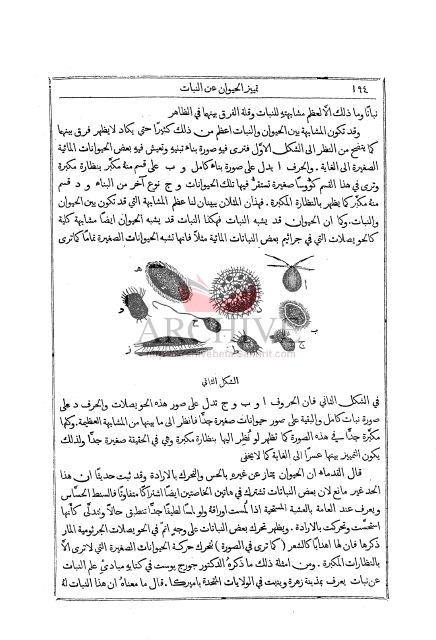 ١٩٤
تمييز الحيوان عن النبات
نباتًا وما ذلك الّا لعظم مشابهتهِ للنبات وقلة الفرق بينها في الظاهر
وقد تكون المشابهة بين الحيوان والنبات اعظم من ذلك كثيرًا حتى يكاد لا يظهر فرق بينها
كما يتضح من النظر الى الشكل الاوّل فترى فيهِ صورة بناء تبنيهِ وتعيش فيهِ بعض الحيوانات المائية
الصغيرة الى الغاية. والحرف ا يدل على صورة بناء كامل و ب على قسم منهُ مكبّر بنظارة مكبرة
وترى في هذا القسم كؤوسًا صغيرة تستقرُّ فيها تلك الحيوانات و ج نوع آخر من البناء و د قسم
منهُ مكبّر كما يظهر بالنظارة المكبرة. فهذان المثلان يبينان لنا عظم المشابهة التي قد تكون بين الحيوان
والنبات. وكما ان الحيوان قد يشبه النبات فهكذا النبات قد يشبه الحيوان ايضًا مشابهة كلية
كالحويصلات التي في جراثيم بعض النباتات المائية مثلاً فانها تشبه الحيوانات الصغيرة تمامًا كما ترى
ا
ب
ج
د
ARCHIVE
الشكل الثاني
في الشكل الثاني فان الحروف ا و ب و ج تدل على صور هذه الحويصلات والحرف د على
صورة نبات كامل والبقية على صور حيوانات صغيرة جدًّا فانظر الى ما بينها من المشابهة العظيمة. وكلها
مكبّرة جدًّا في هذه الصورة كما تظهر لو نُظِر اليها بنظارة مكبرة وهي في الحقيقة صغيرة جدًّا ولذلك
يكون التمييز بينها عسرًا الى الغاية كما لا يخفى
قال القدماء ان الحيوان يمتاز عن غيرهِ بالحس والتحرك بالارادة. وقد ثبت حديثًا ان هذا
الحد غير مانع لان بعض النباتات تشترك في هاتين الخاصتين ايضًا اشتراكًا متفاوتًا فالسنط الحسّاس
ويعرف عند العامة بالعشبة المستحية اذا لُمست اوراقهُ ولو لمسًا لطيفًا جدًّا تنطبق حالاً وتتدلّى كأنها
استحسّت وتحركت بالارادة. ويظهر تحرك بعض النباتات على وجهٍ اتم في الحويصلات الجرثومية المار
ذكرها فان لها اهدابًا كالشعر (كما ترى في الصورة) تتحرك حركة الحيوانات الصغيرة التي لا ترى الّا
بالنظارات المكبرة. ومن امثلة ذلك ما ذكرهُ الدكتور جورج بوست في كتابهِ مبادئ علم النبات
عن نبات يعرف بمذبنة زهرة وينبت في الولايات المتحدة باميركا. قال ما معناهُ ان هذا النبات لهُ